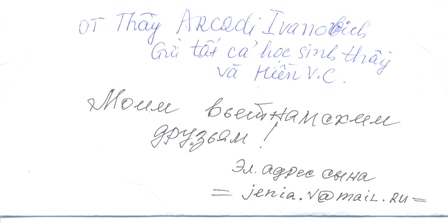 от Thầy Arcadi Ivanovich
Gửi tất cả học sinh thầy
và Hiền V.C.
Моим вьетнамским
друзьям!
Эл. адрес сына
= jenia.v@mail.ru =